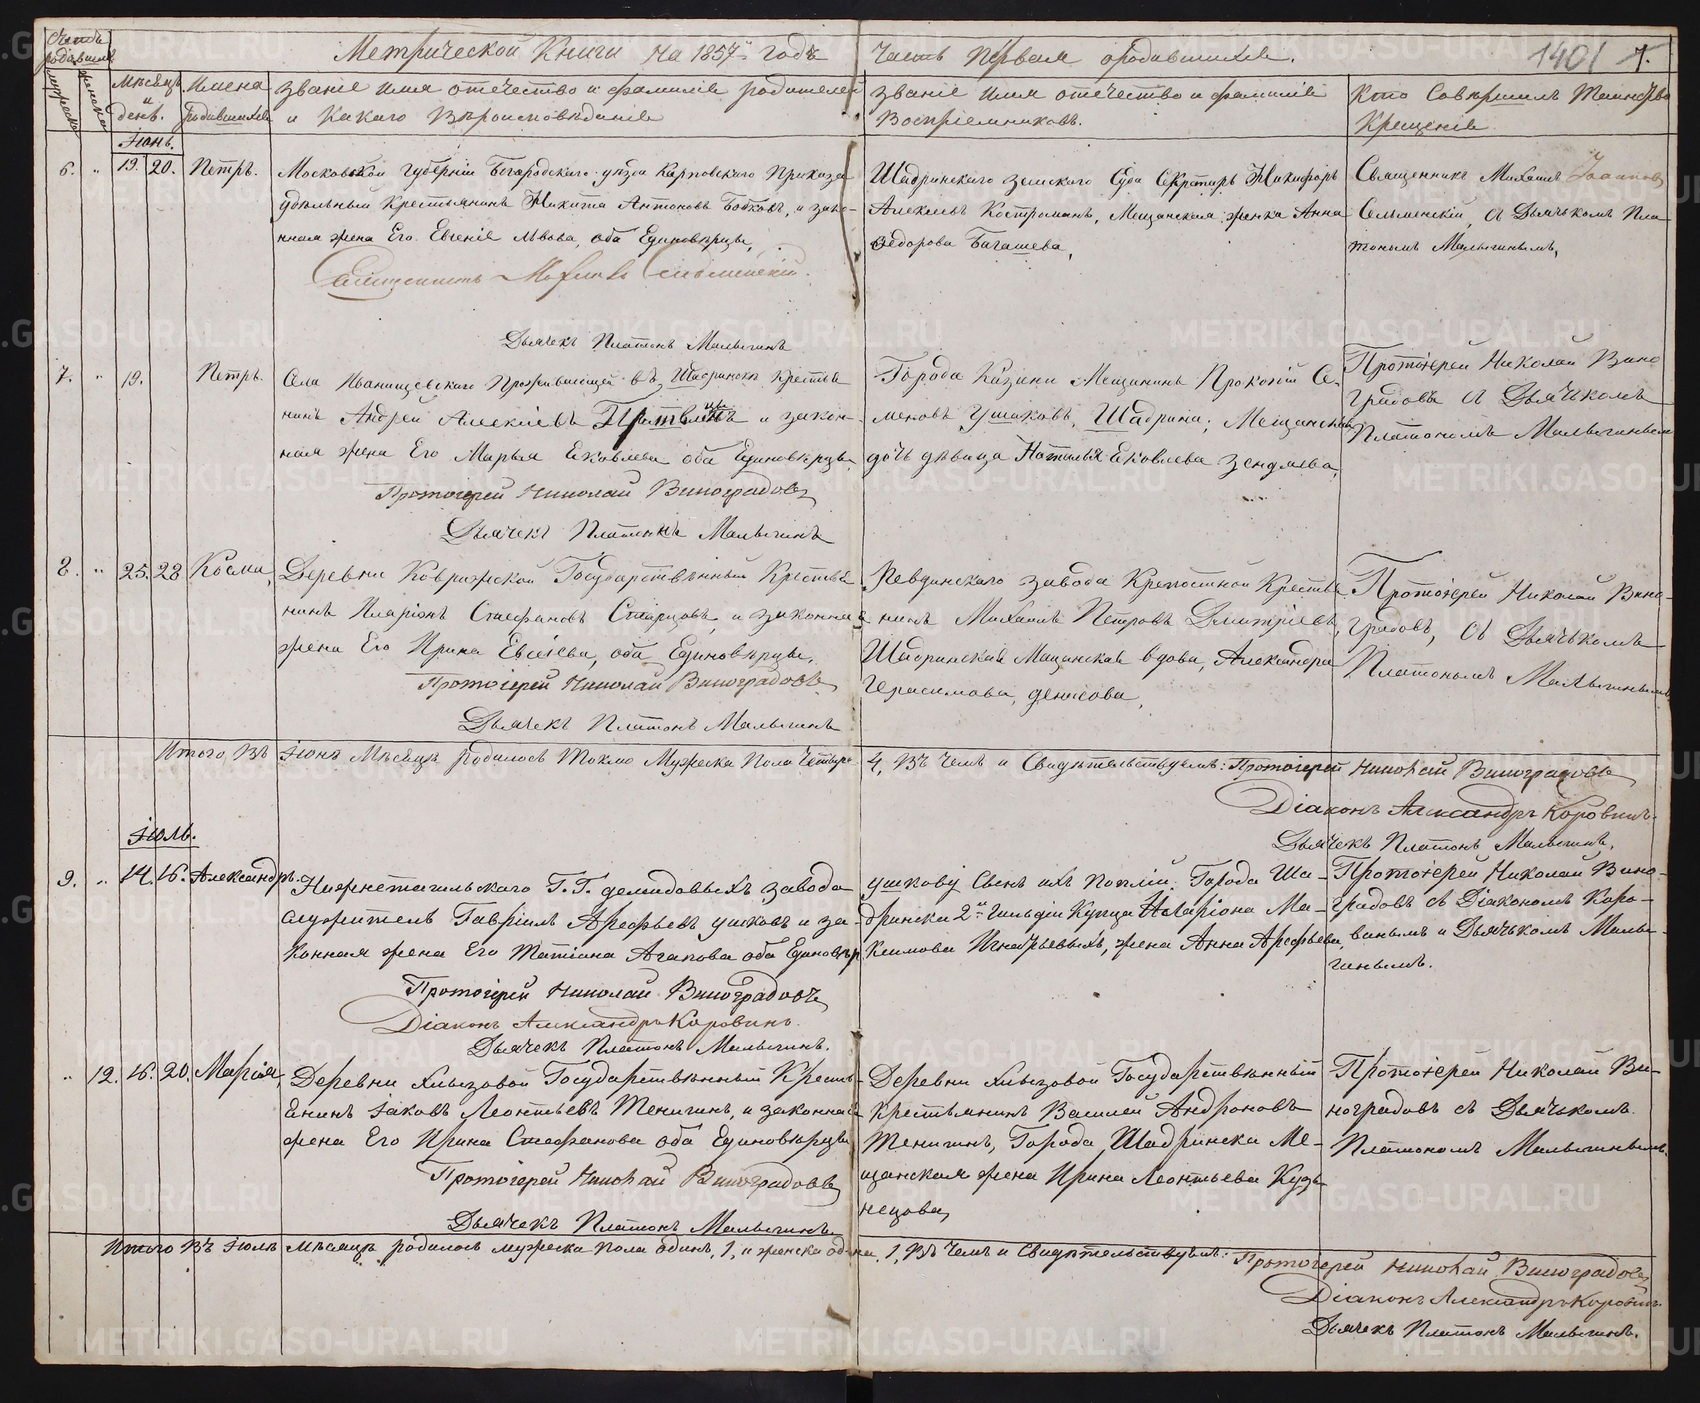 Метрической Книги на 1857й годъ Часть Первая о родившихся. 1401 7.
Счетъ родившихся
мужеска женска
Мѣсяцъ и день.
Имена родившихся
Званіе имя отечество и фамилія родителей
и какого Вѣроисповѣданія
Званіе имя отечество и фамилія
Воспріемниковъ.
Кто Совершилъ Таинство
Крещенія
Іюнь.
6. „ 19. 20. Петръ.
Московской Губерніи Богородскаго уѣзда Карповскаго Приказа
удѣльный крестьянинъ Никита Антоновъ Бобковъ, и зако-
нная жена Его Евгенія Львова, оба Единовѣрцы,
Священникъ Михаилъ Сельменскій.
Дьячекъ Платонъ Малыгинъ
Шадринскаго земскаго Суда Секретарь Никифоръ
Алексѣевъ Костроминъ, Мещанская женка Анна
Ѳедорова Багашева,
Священникъ Михаилъ Іоанновъ
Сельменскій, съ Дьячькомъ Пла-
тономъ Малыгинымъ,
7. „ 19. Петръ.
Села Иванищевскаго Проживающей въ Шадринскѣ крестья
нинъ Андрей Алексѣевъ и закон-
ная жена Его Марья Яковлева оба Единовѣрцы,
Протоіерей Николай Виноградовъ
Дьячекъ Платонъ Малыгинъ
Города Мещанинъ Прокопій Се-
меновъ Ушаковъ, Шадрина; Мещанская
дочь дѣвица Наталья Яковлева
Протоіерей Николай Вино
градовъ съ Дьячькомъ
Платономъ Малыгинымъ
8. „ 25. 28 Косма,
Деревни Коврижской Государственный Крестья
нинъ Иларіонъ Стефановъ Старцовъ, и законная
жена Его Ирина Евсѣева, оба Единовѣрцы,
Протоіерей Николай Виноградовъ
Дьячекъ Платонъ Малыгинъ
Ревдинскаго завода Крепостной Крестья
нинъ Михаилъ Петровъ Дмитріевъ,
Шадринская Мещанская вдова, Александра
Герасимова, денисова,
Протоіерей Николай Вино-
градовъ, Съ Дьячькомъ
Платономъ Малыгинымъ
Итого въ Іюнѣ Мѣсяцѣ родилось токмо Мужеска Пола Четыре 4, въ чемъ и Свидѣтельствуемъ: Протоіерей Николай Виноградовъ
Діаконъ Александръ Коровинъ.
Дьячекъ Платонъ Малыгинъ.
Іюль.
9. „ 14. 16. Александръ.
Нижнетагильскаго Г.Г. демидовыхъ завода
служитель Гавріилъ Арефьевъ ушковъ и за-
конная жена Его Татіана Агапова оба Единовѣр
Протоіерей Николай Виноградовъ
Діаконъ Александръ Коровинъ.
Дьячекъ Платонъ Малыгинъ.
ушкову Города Ша-
дринска 2й гильдіи Купца Иларіона Ма-
кимова Игнатьевыхъ, жена Анна Арефьева,
Протоіерей Николай Вино-
градовъ съ Діакономъ Коро-
винымъ и Дьячькомъ Малы-
гинымъ.
„ 12. 16. 20. Марія,
Деревни Хлызовой Государственный Кресть-
янинъ Іаковъ Леонтьевъ Тенигинъ, и законная
жена Его Ирина Стефанова оба Единовѣрцы
Протоіерей Николай Виноградовъ
Дьячекъ Платонъ Малыгинъ.
Деревни Хлызовой Государственный
крестьянинъ Василей Андроновъ
Тенигинъ, Города Шадринска Ме-
щанская жена Ирина Леонтьева Кузь-
нецова,
Протоіерей Николай Ви-
ноградовъ съ Дьячькомъ
Платономъ Малыгинымъ.
Итого въ Іюлѣ Мѣсяцѣ родилось мужеска пола одинъ, 1, и женска одна 1, въ чемъ и Свидѣтельствуемъ: Протоіерей Николай Виноградовъ
Діаконъ Александръ Коровинъ.
Дьячекъ Платонъ Малыгинъ.
METRIKI.GASO-URAL.RU